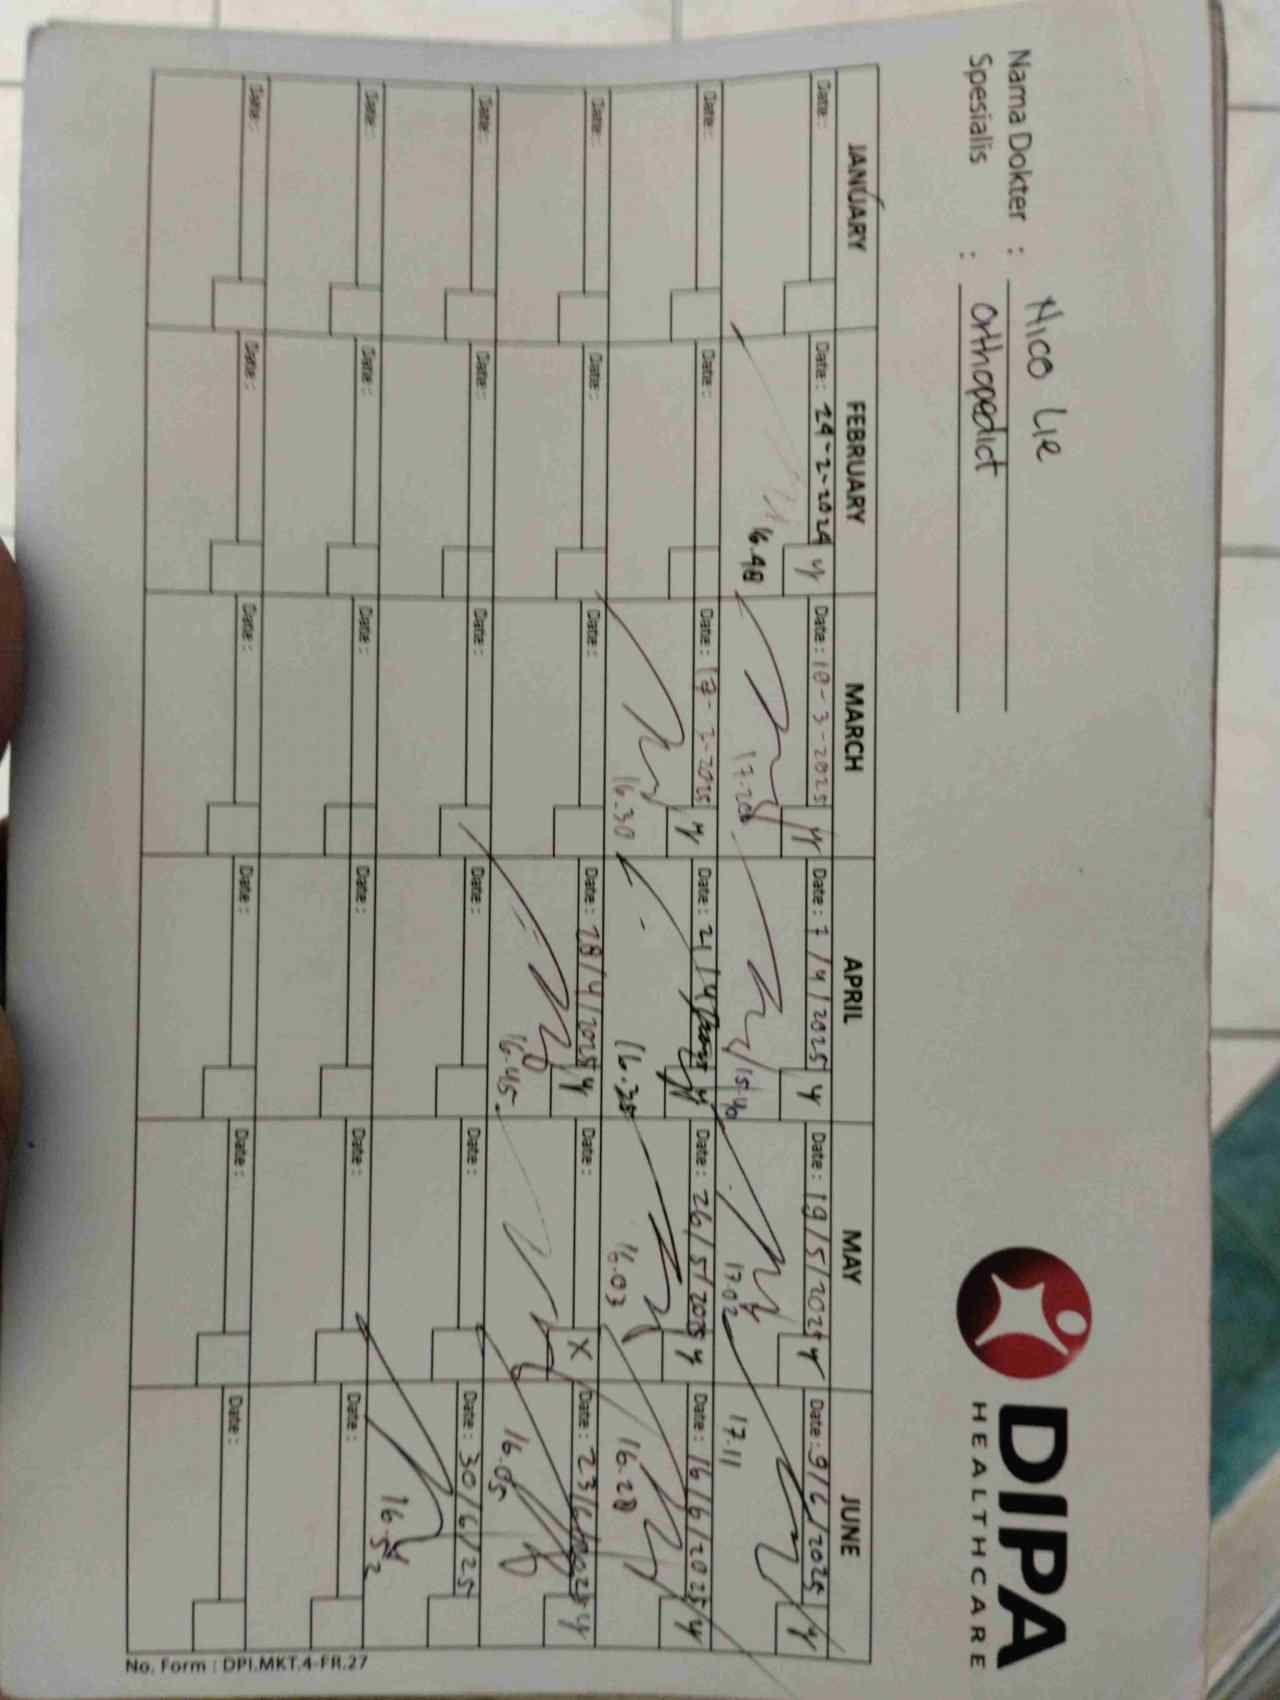 Nama Dokter : Nico Lie
Spesialis : Orthopedict
DIPA
HEALTHCARE
JANUARY FEBRUARY MARCH APRIL MAY JUNE
Date : Date : 24-2-2024 y Date : 10-3-2025 y Date : 7/4/2025 y Date : 19/5/2025 y Date : 9/6/2025 y
16.48 17.20 15.40 17.02 17.11
Date : Date : Date : 17-3-2025 y Date : 21/4/2025 y Date : 26/5/2025 y Date : 16/6/2025 y
16.30 16.38 16.03 16.28
Date : Date : Date : Date : 28/4/2025 y Date : X Date : 23/6/2025 y
16.45 16.05
Date : Date : Date : Date : Date : Date : 30/6/25
16.52
Date : Date : Date : Date : Date : Date :
Date : Date : Date : Date : Date : Date :
No. Form : DPI.MKT.4-FR.27